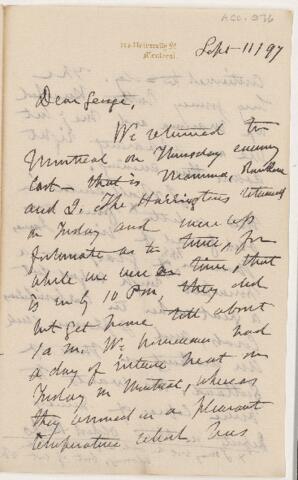 ACC. 976
University St
Montreal.
Sept 11/97
Dear George,
We returned to
Montreal on Thursday evening
last - that is Mamma, Rankine
and I. The Harringtons returned
on Friday and were less
fortunate as to time, for
while we were on time, that
is in by 10 P.M., they did
not get home till about
1 a m. We however had
a day of intense heat on
Friday in Montreal, whereas
they arrived in a pleasant
temperature which has